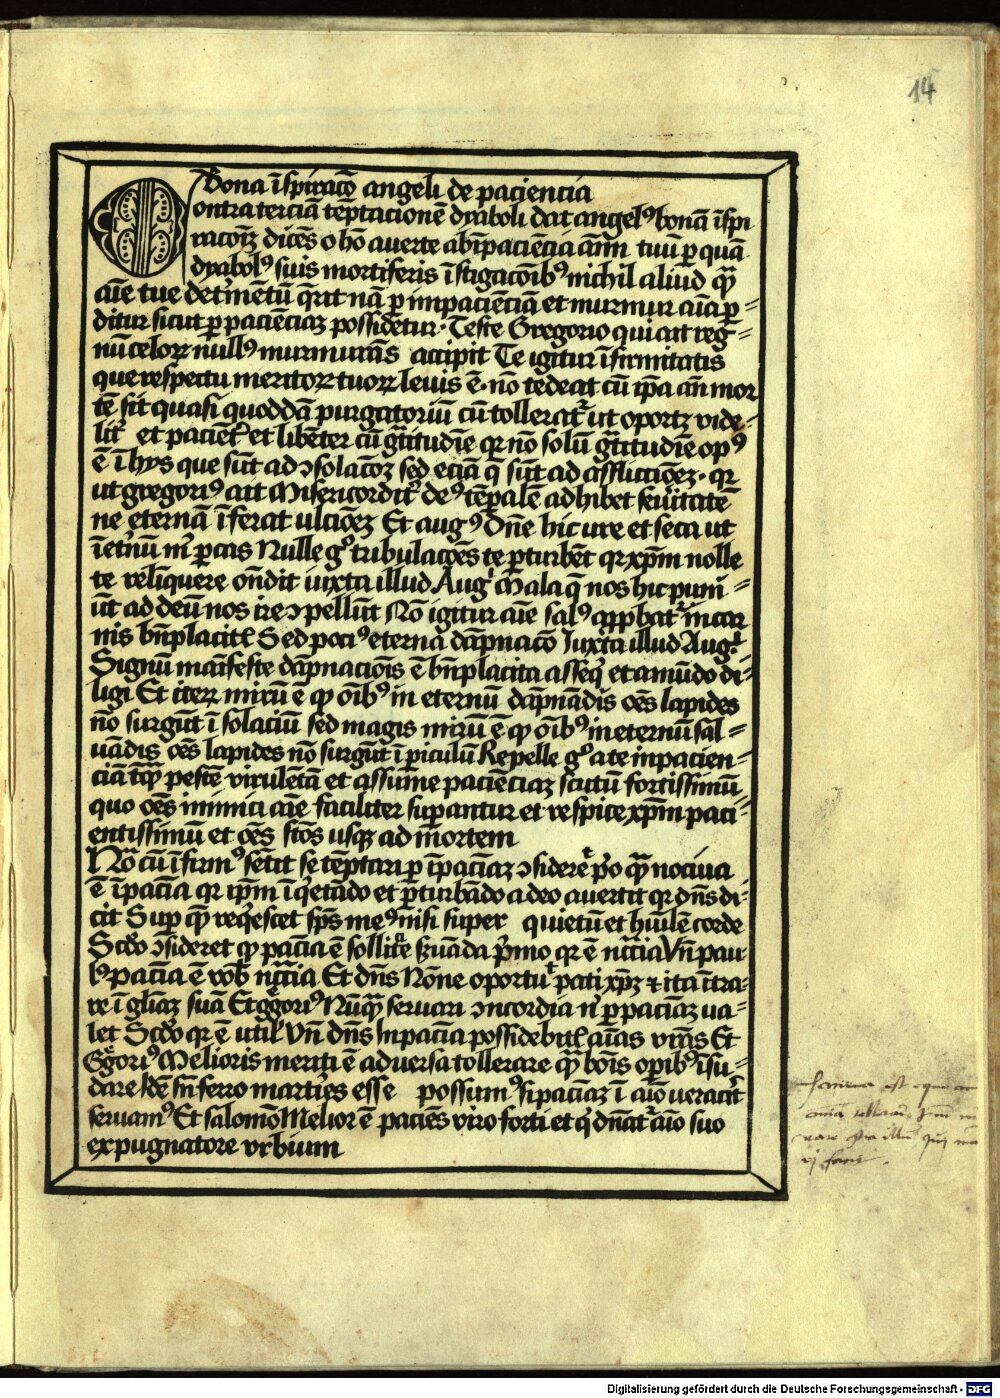 14
Bona īspiracō angeli de paciencia
Contra terciā tēptacionē dyaboli dat angelꝰ bonā īspi
racōꝫ dicēs o hō averte ab īpaciēcia aīm tuū ꝑ quā
dyabolꝰ suis mortiferis īstigacōibꝰ nichil aliud qꝫ̄
aīe tue det'mētū q̄rit nā ꝑ impaciēciā et murmur aīa ꝑ=
ditur sicut ꝑ paciēciaꝫ possidetur · Teste Gregorio qui ait reg=
nū celoꝝ nullꝰ murmurās accipit Te igitur īfirmitatis
que respectu meritoꝝ tuoꝝ levis ē · nō tedeat cū ip̄a an̄ mor
tē sit quasi quoddā purgatoriū cū tollerat᷑ ut oportꝫ vide=
lit᷑ et paciēt᷑ et libēter cū gͣtitudīe qꝛ nō solū gͣtitudīe opꝰ
ē ī hys que sūt ad ↄsolacōꝫ sed eciā q̄ sūt ad afflictiōeꝫ · qꝛ
ut gregoriꝰ ait Misericordit᷑ deꝰ tēꝑalē adhibet sev᷑itatē
ne eternā īferat ulciōeꝫ Et augꝰ Dn̄e hic ure et seca ut
īet᷑nū m' ꝑcas Nulle gͦ tribulacōes te ꝑturbēt qꝛ xp̄m nolle
te relīquere on̄dit iuxta illud Augͥ Mala q̄ nos hic puni=
ūt ad deū nos ire ↄpellūt Nō igitur aīe salꝰ appbat᷑ in car
nis bn̄placitꝭ Sed pociꝰ eterna dāpnacō Iuxta illud Augͥ.
Signū maīfeste dāpnaciōis ē bn̄placita asseq' et a mūdo di=
ligi Et iteꝝ mirū ē ꝙ oībꝰ in eternū dāpnādis oēs lapides
nō surgūt ī solaciū sed magis mirū ē ꝙ oībꝰ in eternū sal=
vādis oēs lapides nō surgūt ī ꝑiculū Repelle gͦ a te inpacien=
ciā tāqꝫ̄ pestē virulētā et assume paciēciaꝫ scutū fortissimū,
quo oēs inimici aīe faciliter suꝑantur et respice xp̄m paci=
entissimū et oēs sc̄os usqꝫ ad mortem
Nō cū īfirmꝰ sētit se tēptari ꝑ īpaciaꝫ ↄsideret pͦo qꝫ̄ nociva
ē īpacīa qꝛ ip̄m īqͥetādo et ꝑturbādo a deo avertit qꝛ dn̄s di=
cit Suꝑ quē reqͥescet sp̄s meꝰ nisi super quietū et hūilē corde
Scd̄o ↄsideret ꝙ paciā ē sollit᷑e ẜvāda pͥmo qꝛ ē nccīa Vn̄ pau
lꝰ paciā ē vobꝭ nccīa Et dn̄s Nōne oportuͭ pati xp̄ꝫ ⁊ ita ītra=
re ī gliaꝫ suā Et ggͦoriꝰ Nūqꝫ̄ servari ↄncordia n' ꝑ paciaꝫ va=
let Scd̄o qꝛ ē utilꝭ Vn̄ dn̄s In paciā possidebitꝭ aīas vr̄as Et
Ggͦoriꝰ Melioris meriti ē adversa tollerare qꝫ̄ bonis oꝑibꝰ īsu=
dare Idē sn̄ ferro martīes esse possumꝰ si paciaꝫ ī aīo veracit᷑
servamꝰ Et salomō Melior ē paciēs viro forti et q' dn̄at᷑ aīo suo
expugnatore urbium
Digitalisierung gefördert durch die Deutsche Forschungsgemeinschaft - DFG